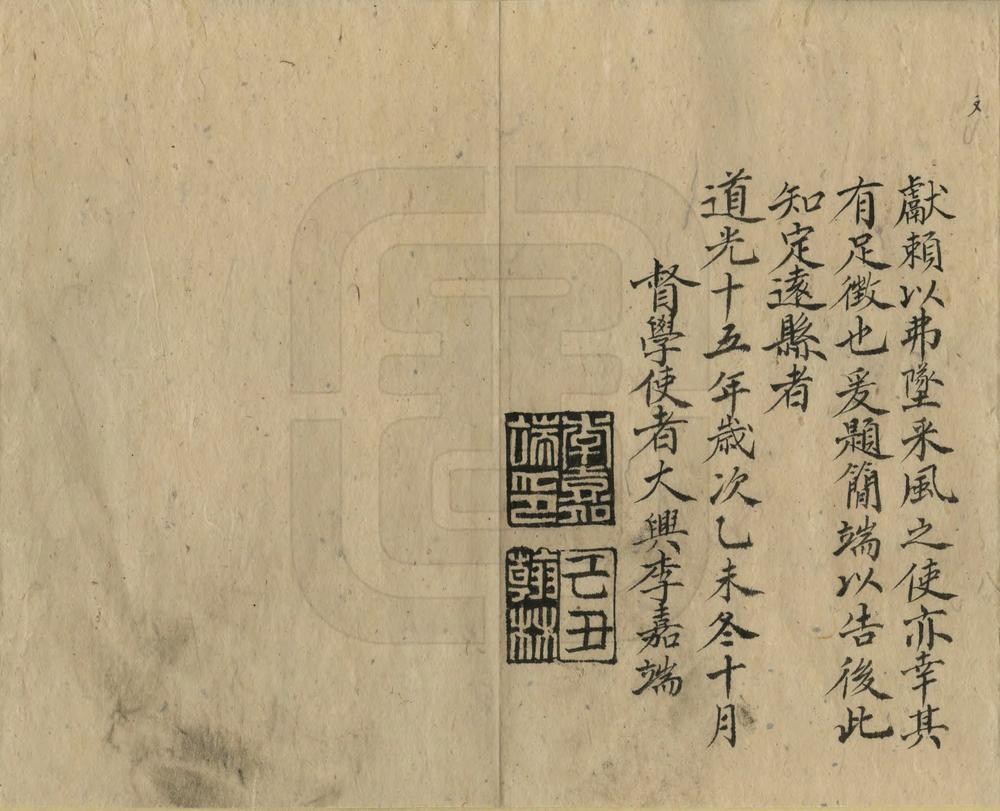 獻賴以弗墜采風之使亦幸其
有足徵也爰題簡端以告後此
知定遠縣者
道光十五年歲次乙未冬十月
督學使者大興李嘉端
李嘉端印
己丑翰林
文